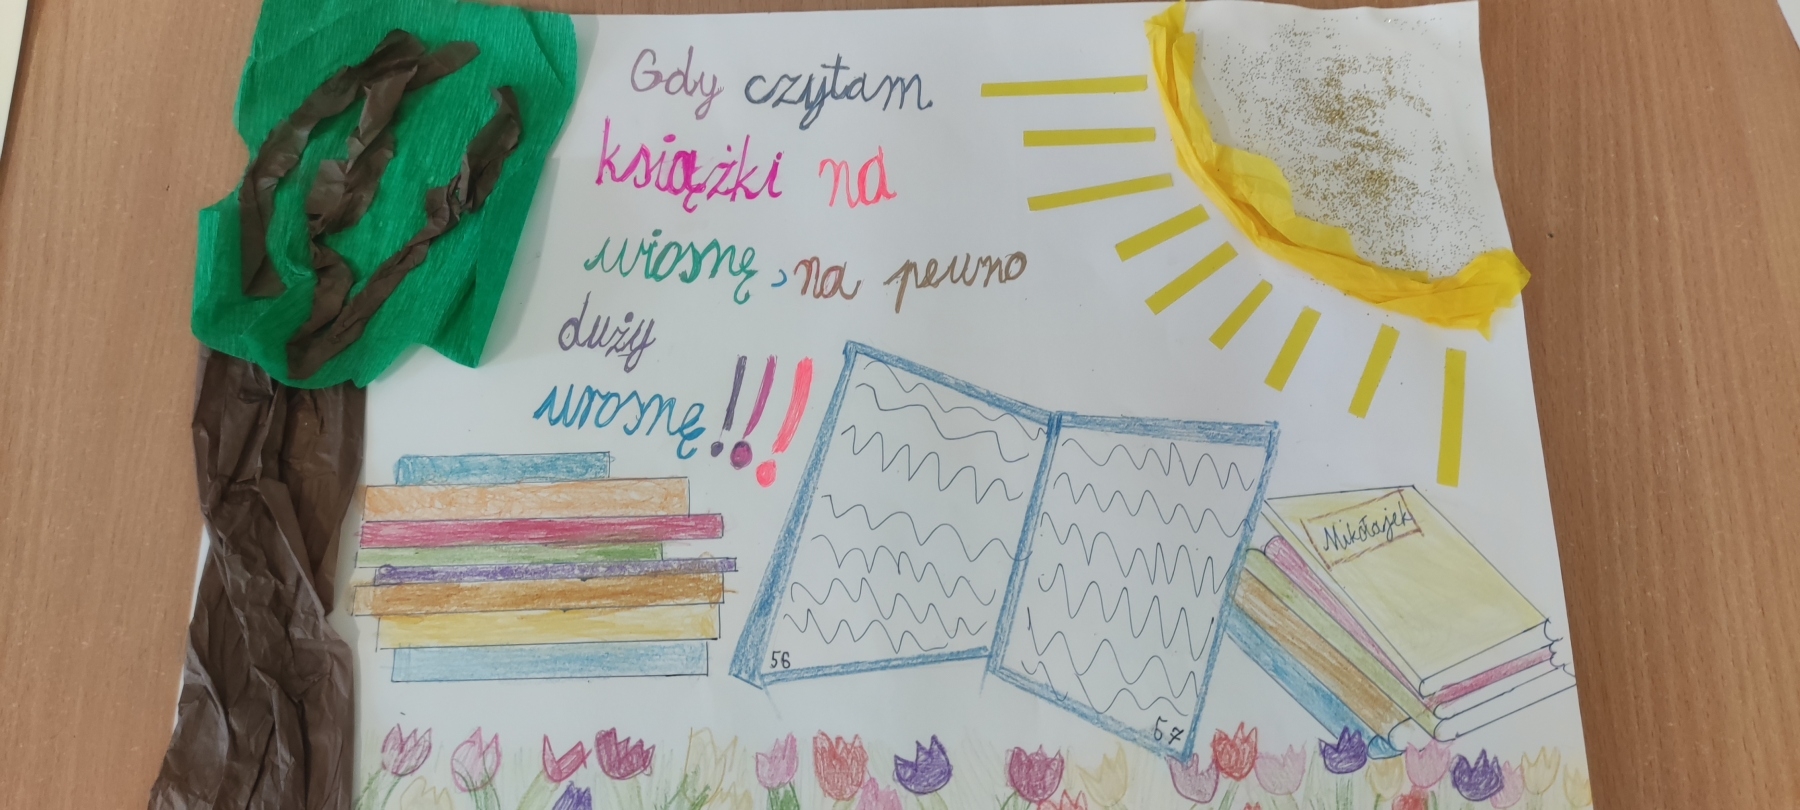 Gdy czytam
książki na
wiosnę, na pewno
duży
wrosnę!!!
Mikołajek
56
57